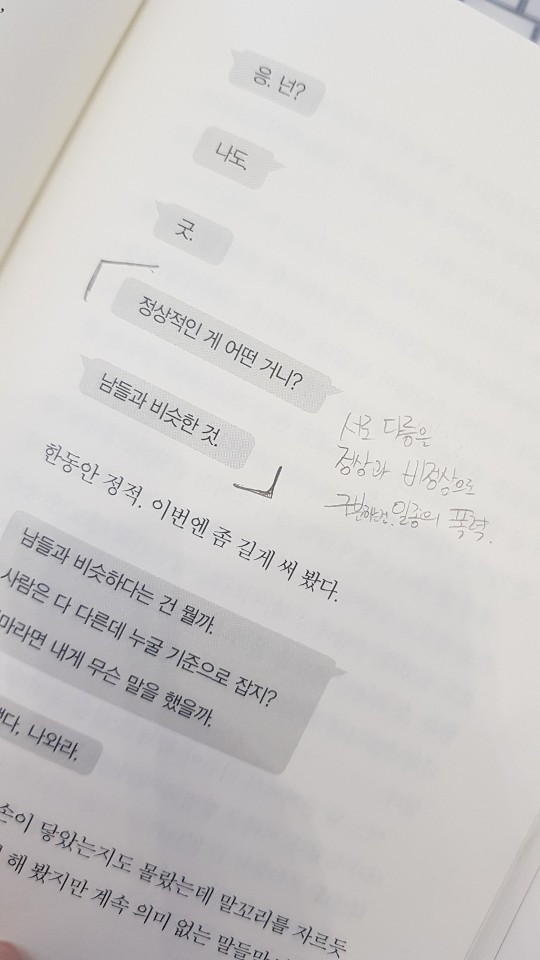 응. 넌?
나도.
굿.
정상적인 게 어떤 거니?
남들과 비슷한 것.
서로 다름은
정상과 비정상으로
구분하는건. 일종의 폭력.
한동안 정적. 이번엔 좀 길게 써 봤다.
남들과 비슷하다는 건 뭘까.
사람은 다 다른데 누굴 기준으로 잡지?
라면 내게 무슨 말을 했을까.
나와라.
손이 닿았는지도 몰랐는데 말꼬리를 자르듯
해 봤지만 계속 의미 없는 말들만